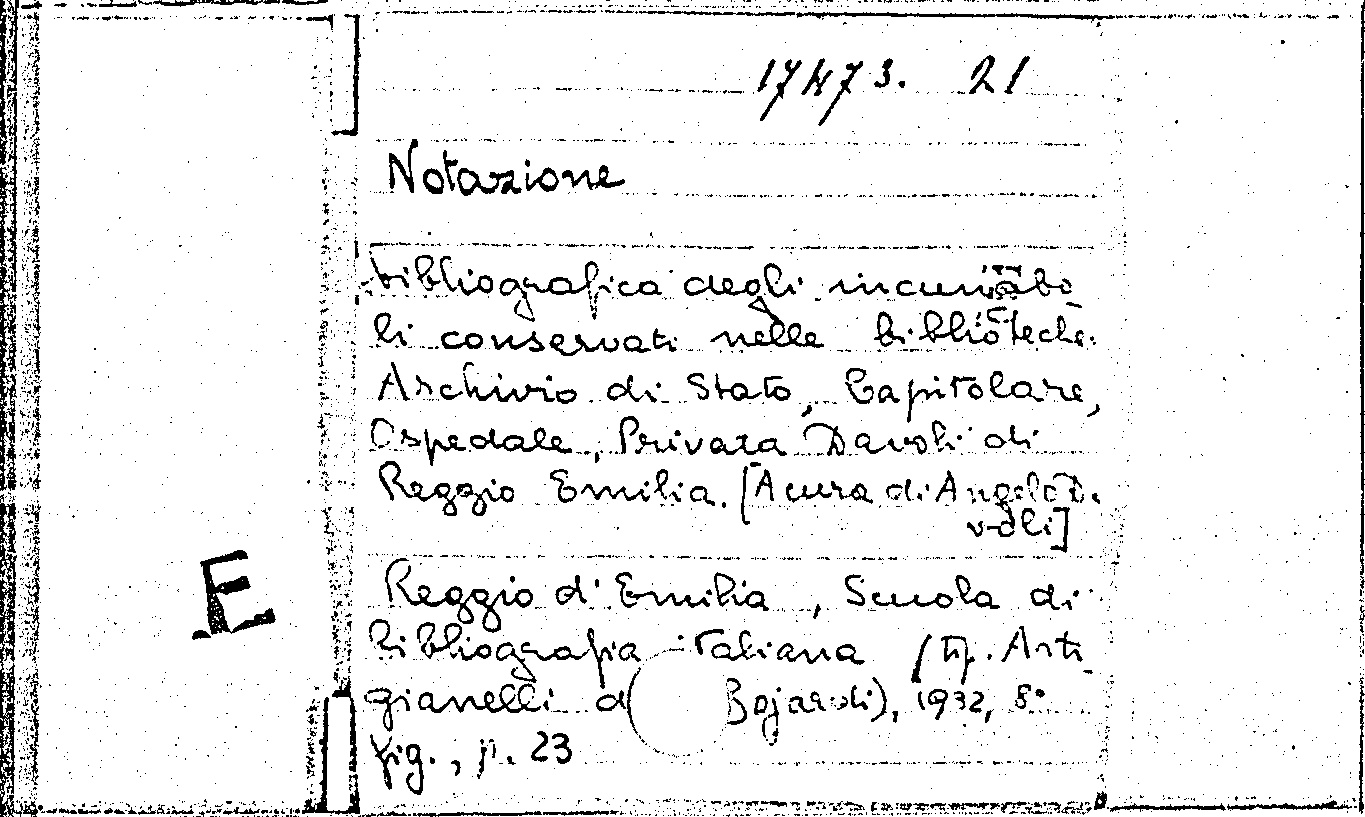 17473. 21
Notazione
bibliografica degli incunabo_
li conservati nelle biblioteche:
Archivio di Stato, Capitolare,
Ospedale, Privata Davoli di
Reggio Emilia. [A cura di Angelo Da
voli]
E
Reggio d'Emilia, Scuola di
bibliografia italiana (tip. Arti_
gianelli d( Bojardi), 1932, 8°
fig., p. 23